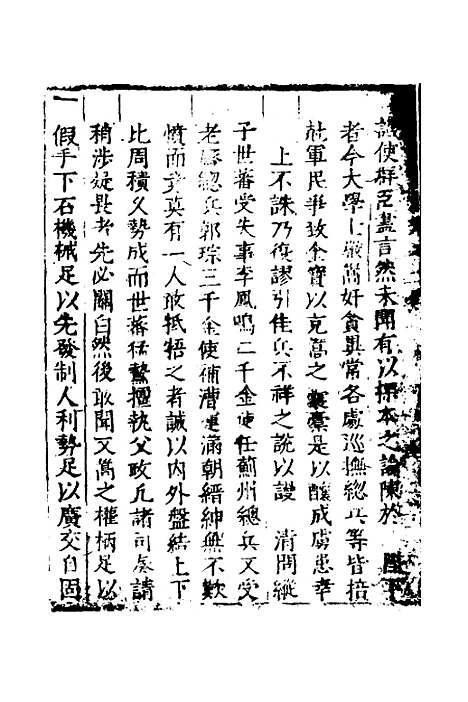 詔使群臣盡言然未聞有以探本之論陳於 陛下
者今大學士嚴嵩奸貪異常各處巡撫總兵等皆掊
尅軍民事致金寶以克嵩之囊橐是以釀成虜患幸
上不誅乃復謬引佳兵不祥之說以謾 清問縱
子世蕃受失事李鳳鳴二千金使任薊州總兵又受
老廢總兵郭琮三千金使補漕運滿朝縉紳無不歎
憤而竟莫有一人敢抵牾之者誠以內外盤結上下
比周積久勢成而世蕃猛鷙擅執父政凡諸司奏請
稍涉疑畏者先必關白然後敢聞又嵩之權柄足以
假手下石機械足以先發制人利勢足以廣交自固